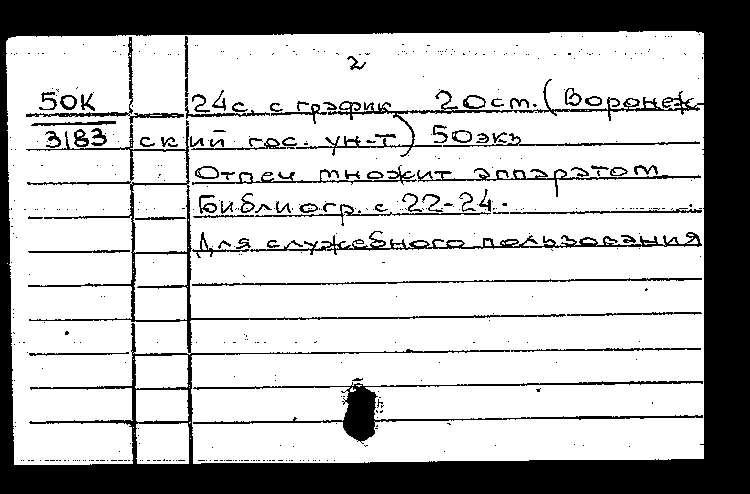 2
50К 24с. с график 20см. (Воронеж-
3183 ский гос. ун-т) 50экз
Отпеч множит аппаратом
Библиогр. с 22-24.
Для служебного пользования